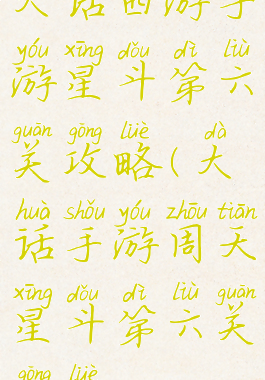 大话西游手
yóu xīng dǒu dì liù
游星斗第六
guān gōng lüè dà
关攻略(大
huà shǒu yóu zhōu tiān
话手游周天
xīng dǒu dì liù guān
星斗第六关
gōng lüè